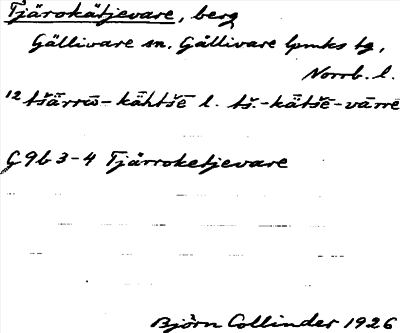 Tjärokätjevare, berg
Gällivare sn. Gällivare lpmks tg,
Norrb. l.
12 tšärrω̄-kähtšē l. tš.-kätšē-vārrē
G 9 b 3-4 Tjärroketjevare
Björn Collinder 1926